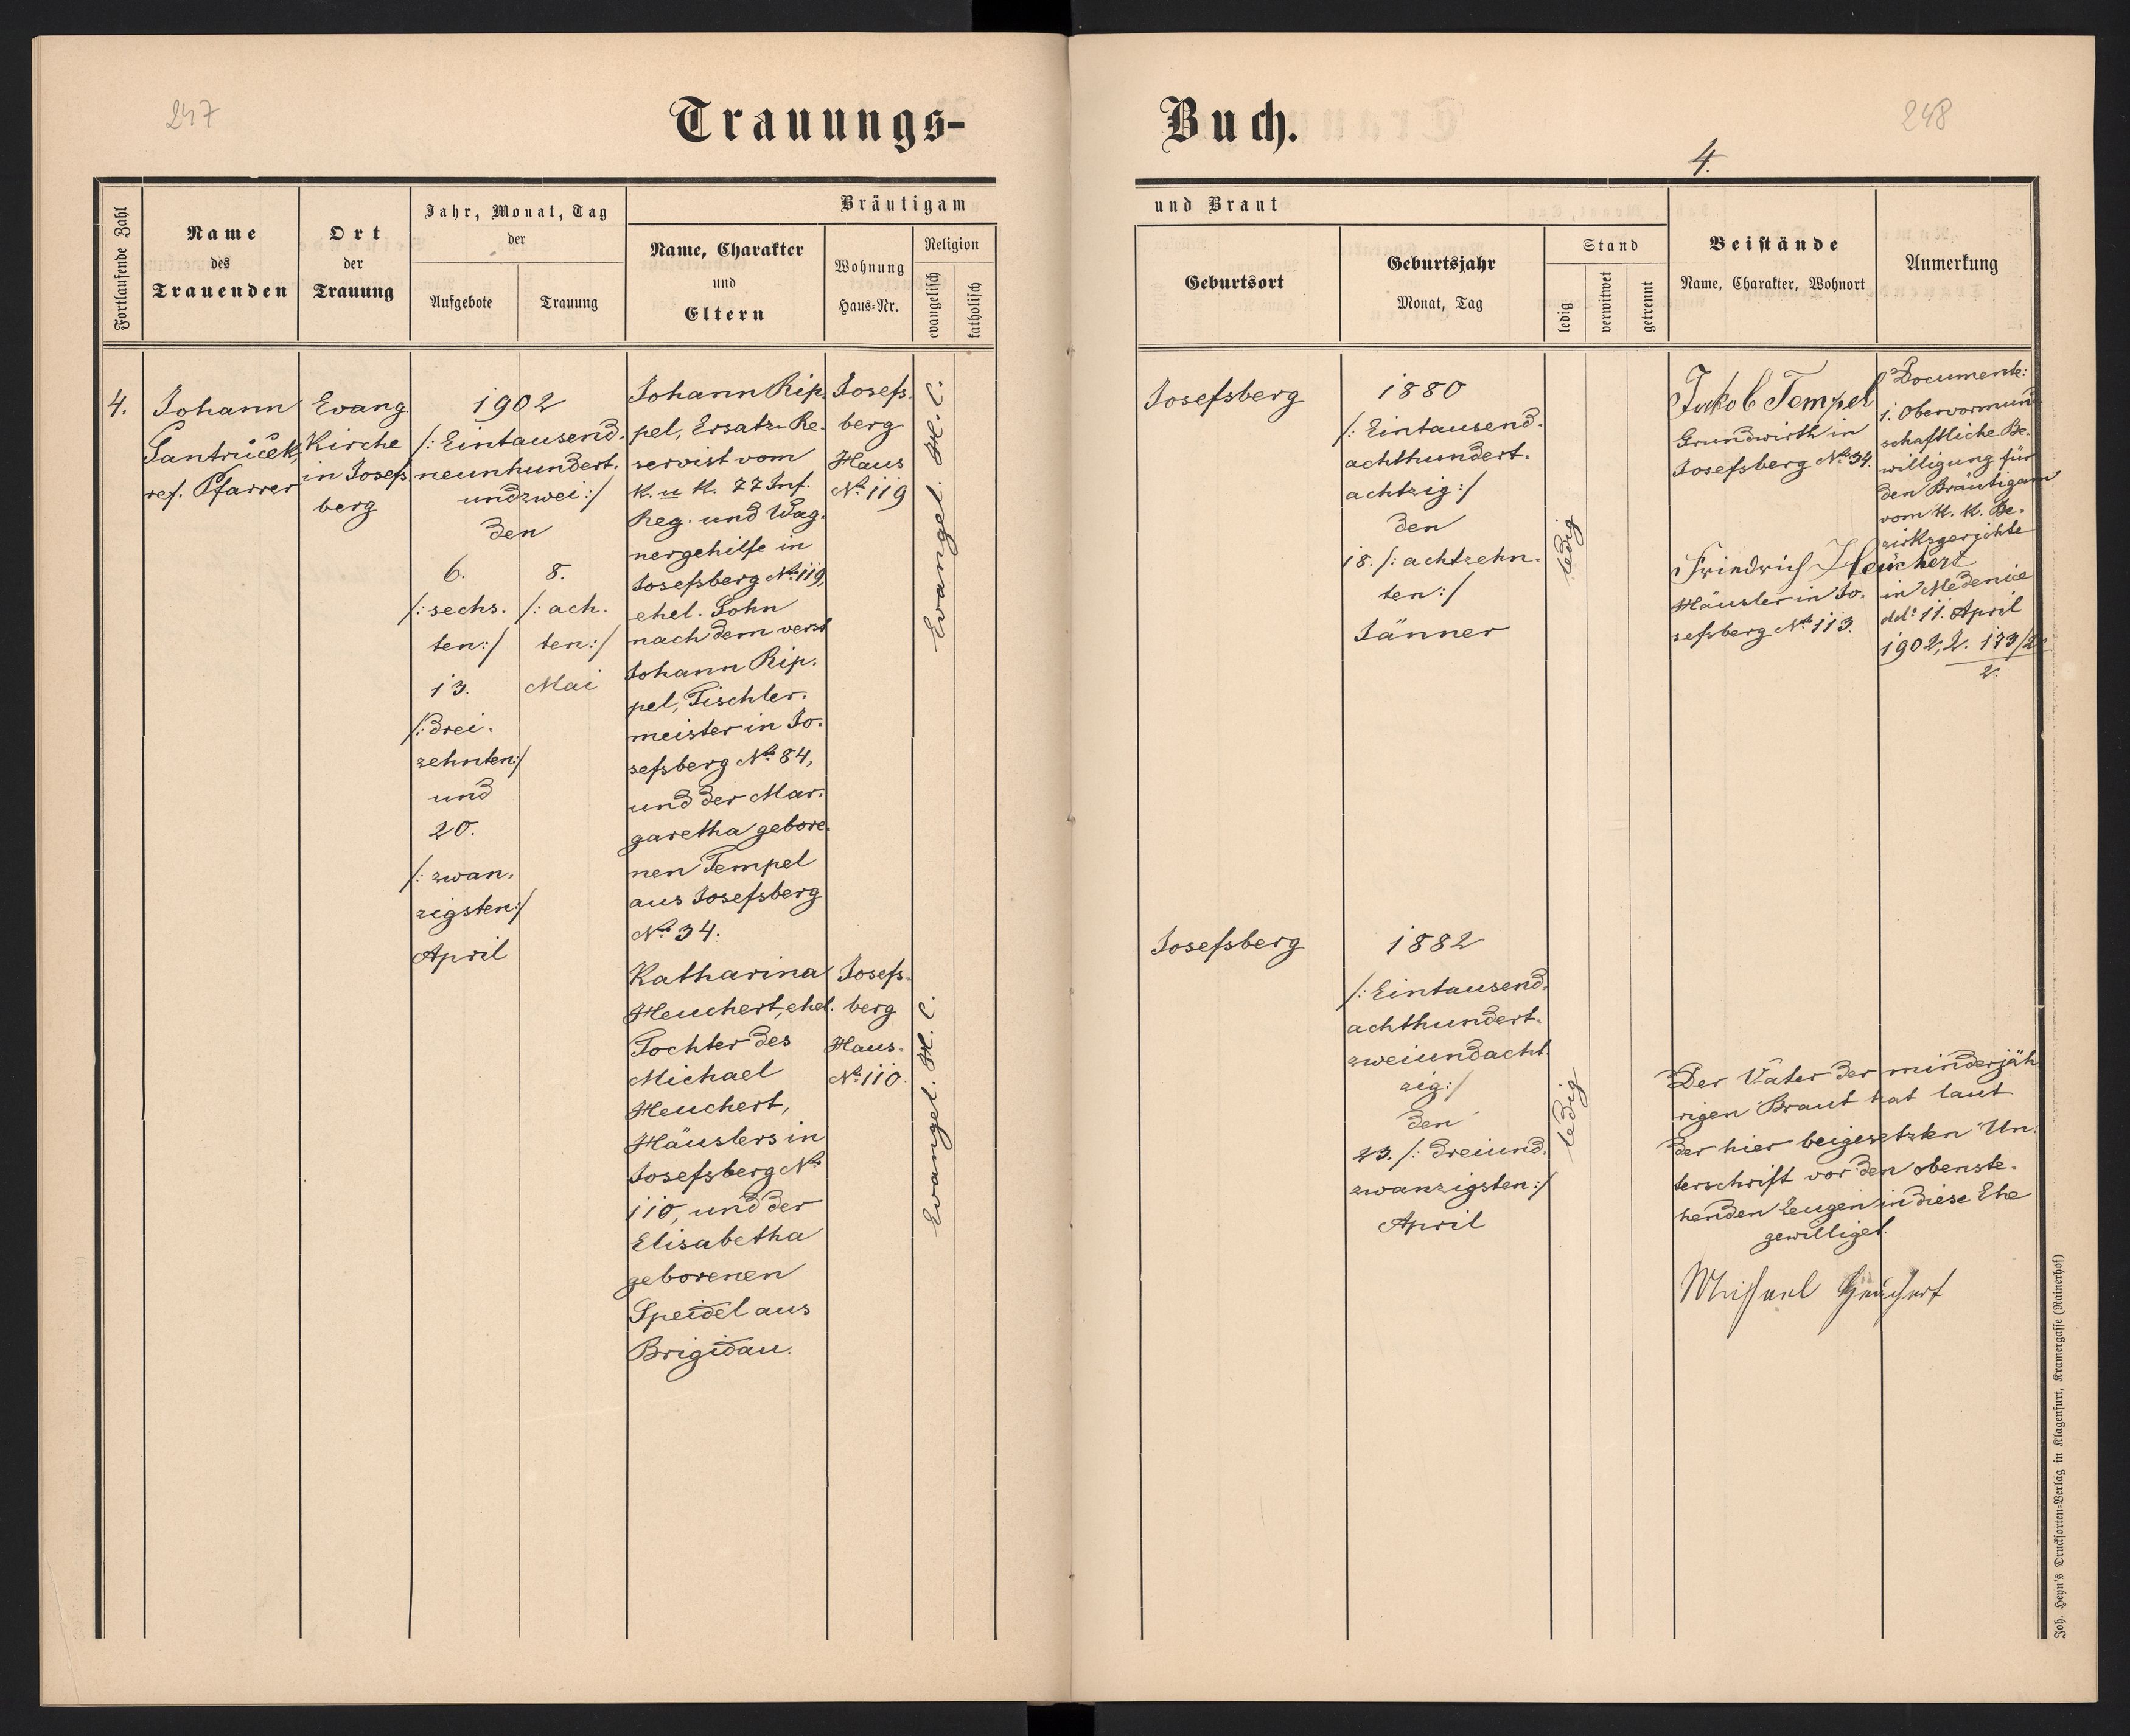 247
Trauungs-
Buch.
248
4.
Fortlaufende Zahl
Name
des
Trauenden
Ort
der
Trauung
Jahr, Monat, Tag
der
Aufgebote
Trauung
Bräutigam
Name, Charakter
und
Eltern
Wohnung
Haus-Nr.
Religion
evangelisch
katholisch
und Braut
Geburtsort
Geburtsjahr
Monat, Tag
Stand
ledig
verwitwet
getrennt
Beistände
Name, Charakter, Wohnort
Anmerkung
4.
Johann
Santrůček,
ref. Pfarrer
Evang
Kirche
in Josefs
berg
1902
/: Eintausend.
neunhundert.
undzwei :/
den
6.
/: sechs.
ten :/
13.
/: drei.
zehnten :/
und
20.
/: zwan.
zigsten :/
April
8.
/: ach.
ten :/
Mai
Johann Rip.
pel, Ersatz-Re.
servist vom
k. u k. 77 Inf.
Reg. und Wag.
nergehilfe in
Josefsberg No. 119,
ehel. Sohn
nach dem verst
Johann Rip.
pel, Tischler.
meister in Jo.
sefsberg No. 84,
und der Mar.
garetha gebore.
nen Tempel
aus Josefsberg
No. 34.
Josefs.
berg
Haus
No. 119
Evangel. H. C.
Katharina
Heuchert, ehel.
Tochter des
Michael
Heuchert,
Häuslers in
Josefsberg No.
110, und der
Elisabetha
geborenen
Speidel aus
Brigidau.
Josefs.
berg
Haus.
No. 110.
Evangel. H. C.
Josefsberg
1880
/: Eintausend.
achthundert.
achtzig :/
den
18. /: achtzehn.
ten :/
Jänner
ledig
Jakob Tempel
Grundwirth in
Josefsberg No. 34.
Friedrich Heuchert
Häusler in Jo.
sefsberg No. 113.
Documente:
1. Obervormund
schaftliche Be.
willigung für
den Bräutigam
vom k. k. Be.
zirksgerichte
in Medenice
ddo. 11. April
1902, Z.
Josefsberg
1882
/: Eintausend.
achthundert.
zweiundacht
zig :/
den
23. /: dreiund.
zwanzigsten :/
April
ledig
Der Vater der minderjäh
rigen Braut hat laut
der hier beigesetzten Un.
terschrift vor den obenste.
henden Zeugen in diese Ehe
gewilliget.
Michael Heuchert
Joh. Heyn's Drucksorten-Verlag in Klagenfurt, Kramergasse (Rainerhof)